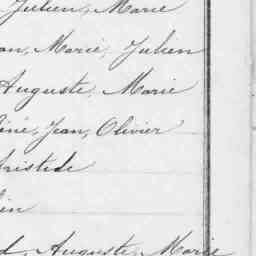 Julien, Marie
an, Marie, Julien
Auguste, Marie
éné, Jean, Olivier
Aristide
ien
d, Auguste, Marie